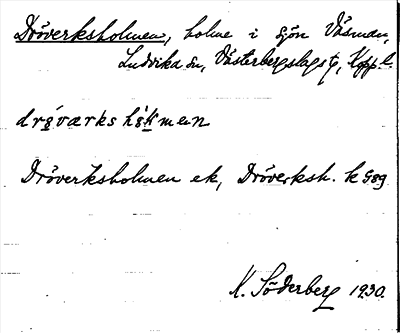 Dröverksholmen, holme i sjön Väsman,
Ludvika sn, Västerbergslags tg, Kopp. l.
drö́värkshòlmen
Dröverksholmen ek, Dröverksh. k G89
K. Söderberg 1930.